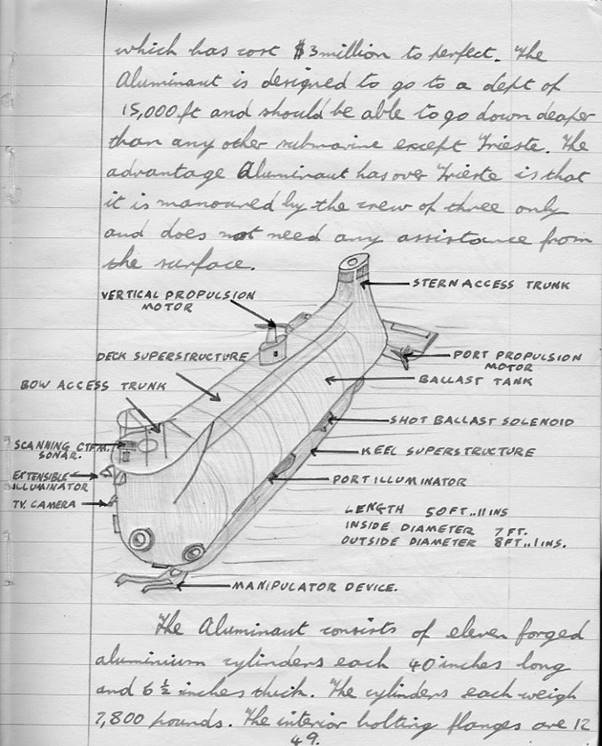 which has cost $3 million to perfect. The
Aluminaut is designed to go to a dept of
15,000 ft and should be able to go down deaper
than any other submarine except Trieste. The
advantage Aluminaut has over Trieste is that
it is manoured by the crew of three only
and does not need any assistance from
the surface.
STERN ACCESS TRUNK
VERTICAL PROPULSION
MOTOR
DECK SUPERSTRUCTURE
PORT PROPULSION
MOTOR
BOW ACCESS TRUNK
BALLAST TANK
SHOT BALLAST SOLENOID
SCANNING CTFM.
SONAR.
KEEL SUPERSTRUCTURE
EXTENSIBLE
ILLUMINATOR
PORT ILLUMINATOR
TV. CAMERA
LENGTH 50FT..11INS
INSIDE DIAMETER 7 FT.
OUTSIDE DIAMETER 8FT..1INS.
MANIPULATOR DEVICE.
The Aluminaut consists of eleven forged
aluminium cylinders each 40 inches long
and 6 ½ inches thick. The cylinders each weigh
7,800 pounds. The interior bolting flanges are 12
49.